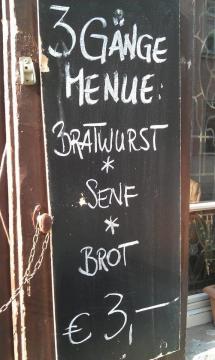 3 GÄNGE
MENUE:
BRATWURST
*
SENF
*
BROT
€ 3,-